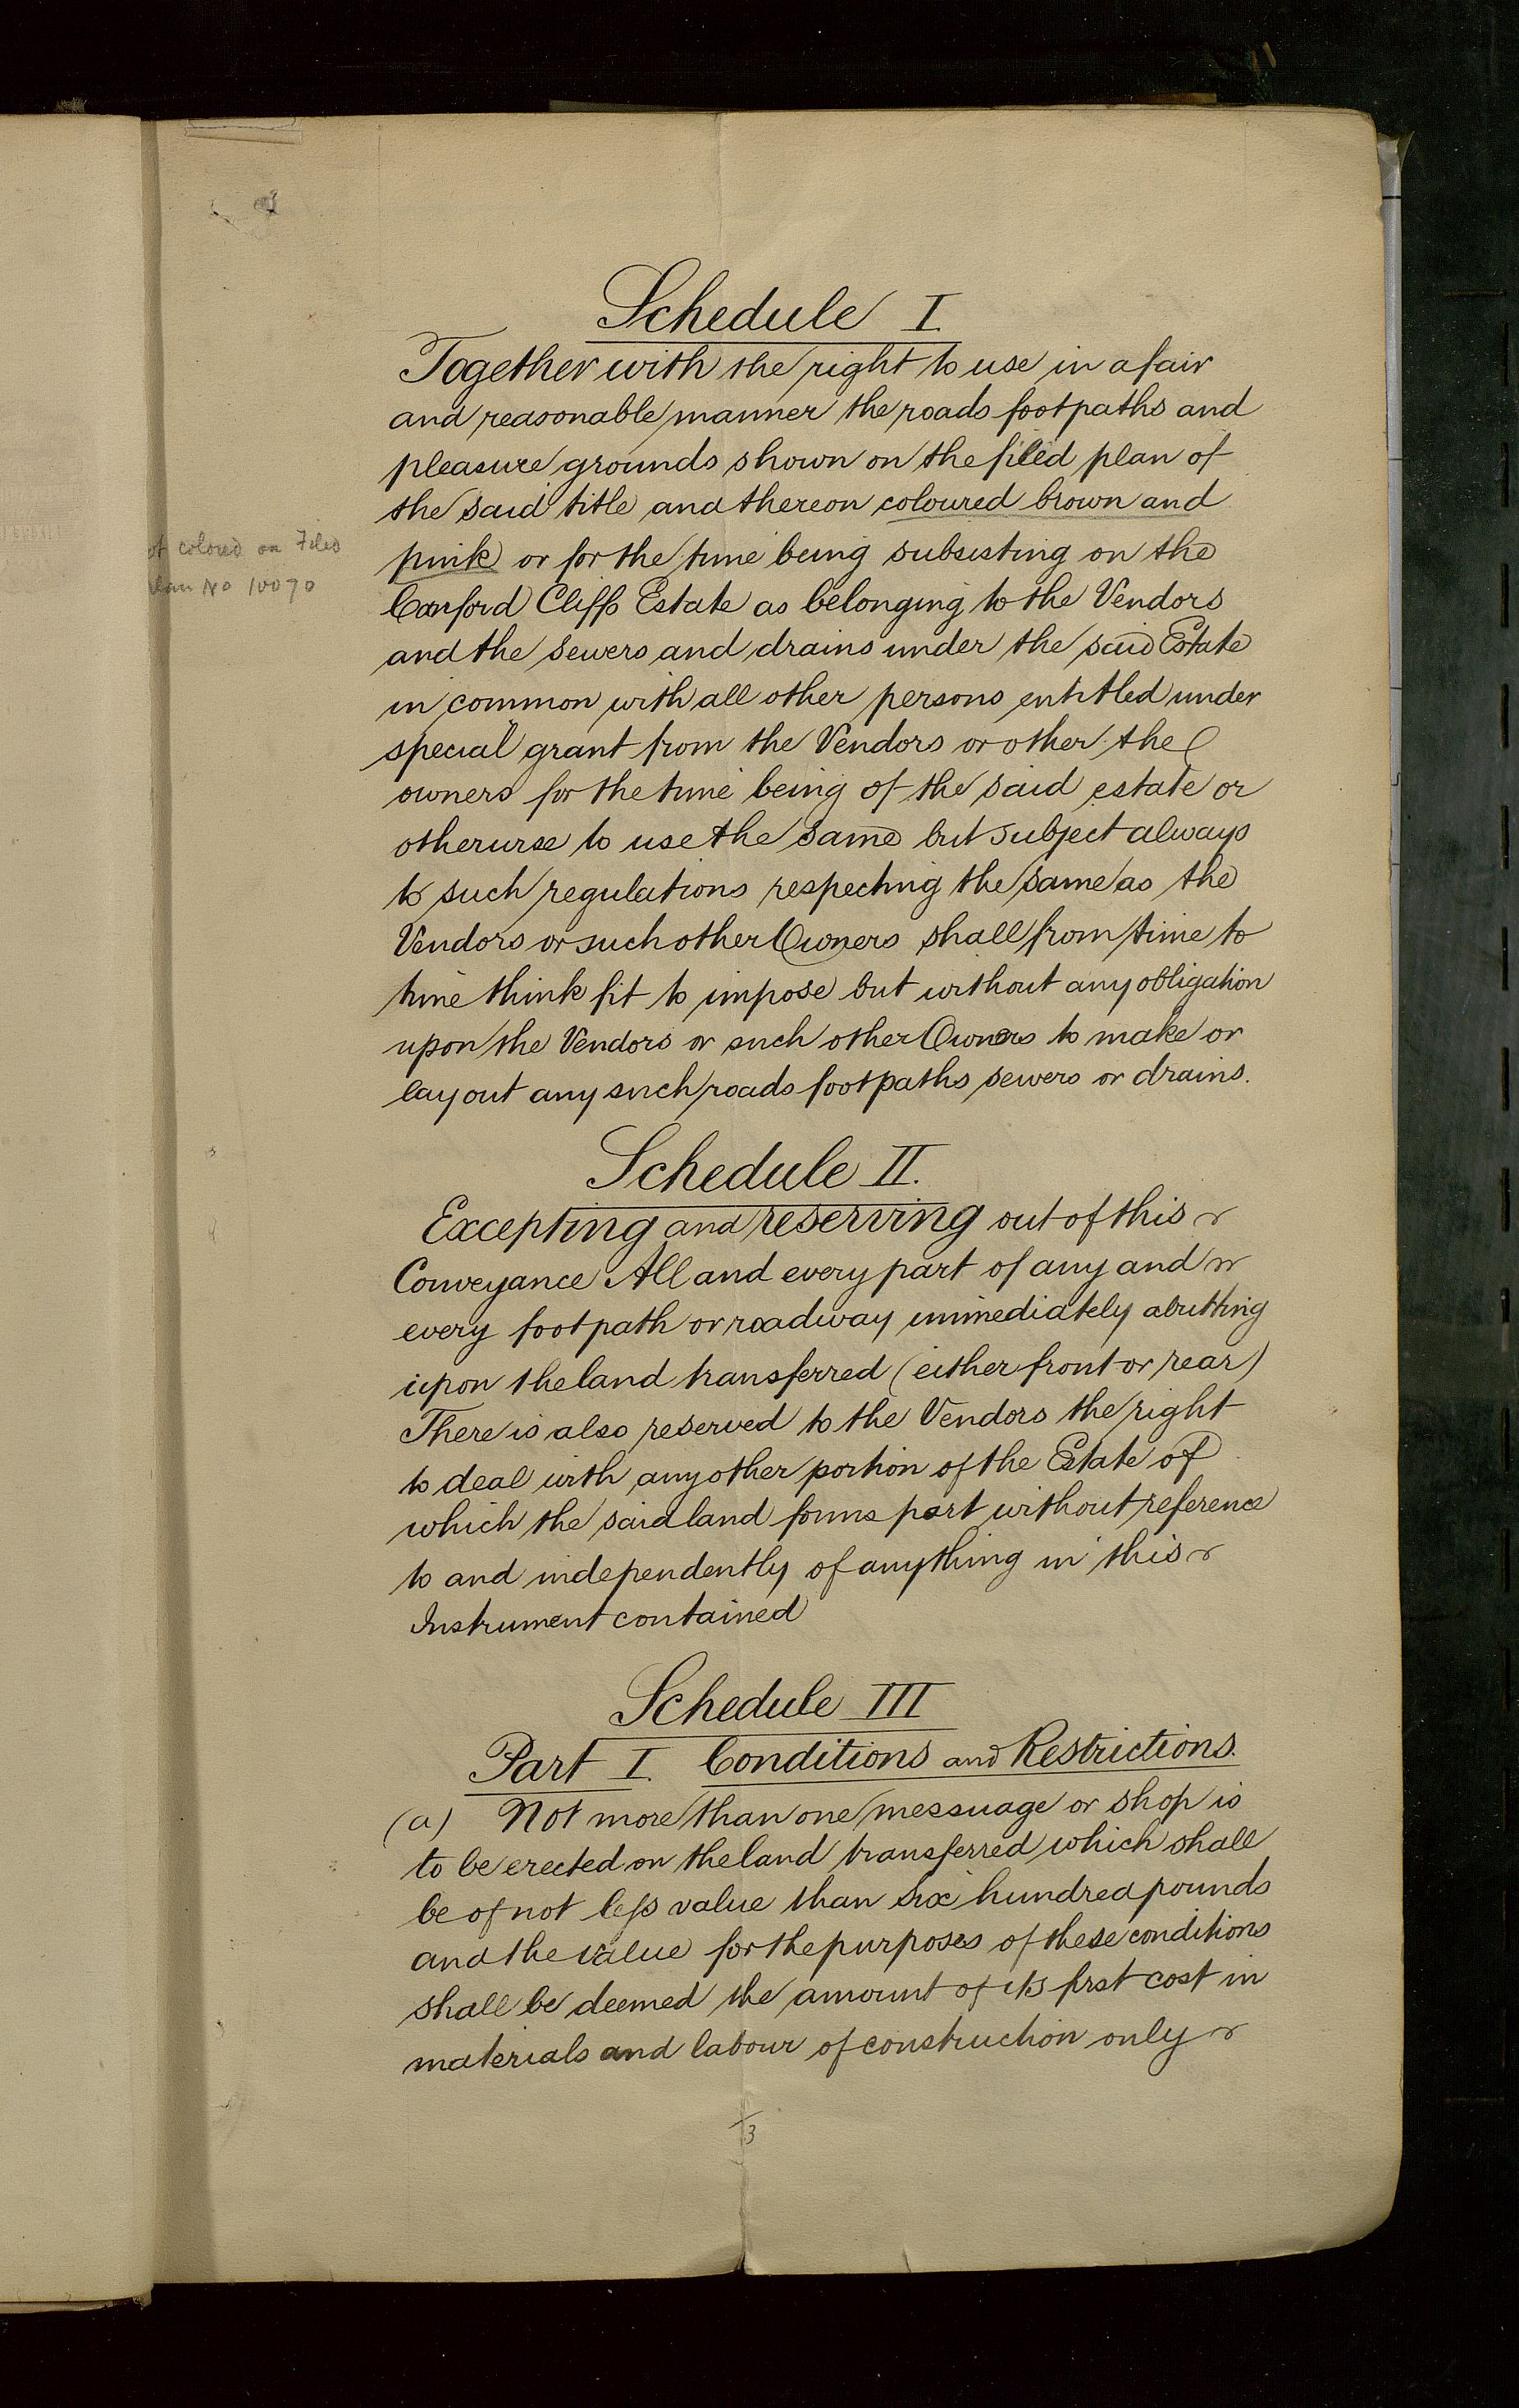 Schedule I.
Together with the right to use in a fair
and reasonable manner the roads footpaths and
pleasure grounds shown on the filed plan of
the said title and thereon coloured brown and
colored on Filed
No 10070
pink or for the time being subsisting on the
Canford Cliffs Estate as belonging to the Vendors
and the sewers and drains under the said Estate
in common with all other persons entitled under
special grant from the Vendors or other the
owners for the time being of the said estate or
otherwise to use the same but subject always
to such regulations respecting the same as the
Vendors or such other Owners shall from time to
time think fit to impose but without any obligation
upon the Vendors or such other Owners to make or
lay out any such roads footpaths sewers or drains.
Schedule II.
Excepting and reserving out of this
Conveyance All and every part of any and
every footpath or roadway immediately abutting
upon the land transferred (either front or rear)
There is also reserved to the Vendors the right
to deal with any other portion of the Estate of
which the said land forms part without reference
to and independently of anything in this
Instrument contained
Schedule III
Part I. Conditions and Restrictions.
(a) Not more than one messuage or shop is
to be erected on the land transferred which shall
be of not less value than six hundred pounds
and the value for the purposes of these conditions
shall be deemed the amount of its first cost in
materials and labour of construction only
3